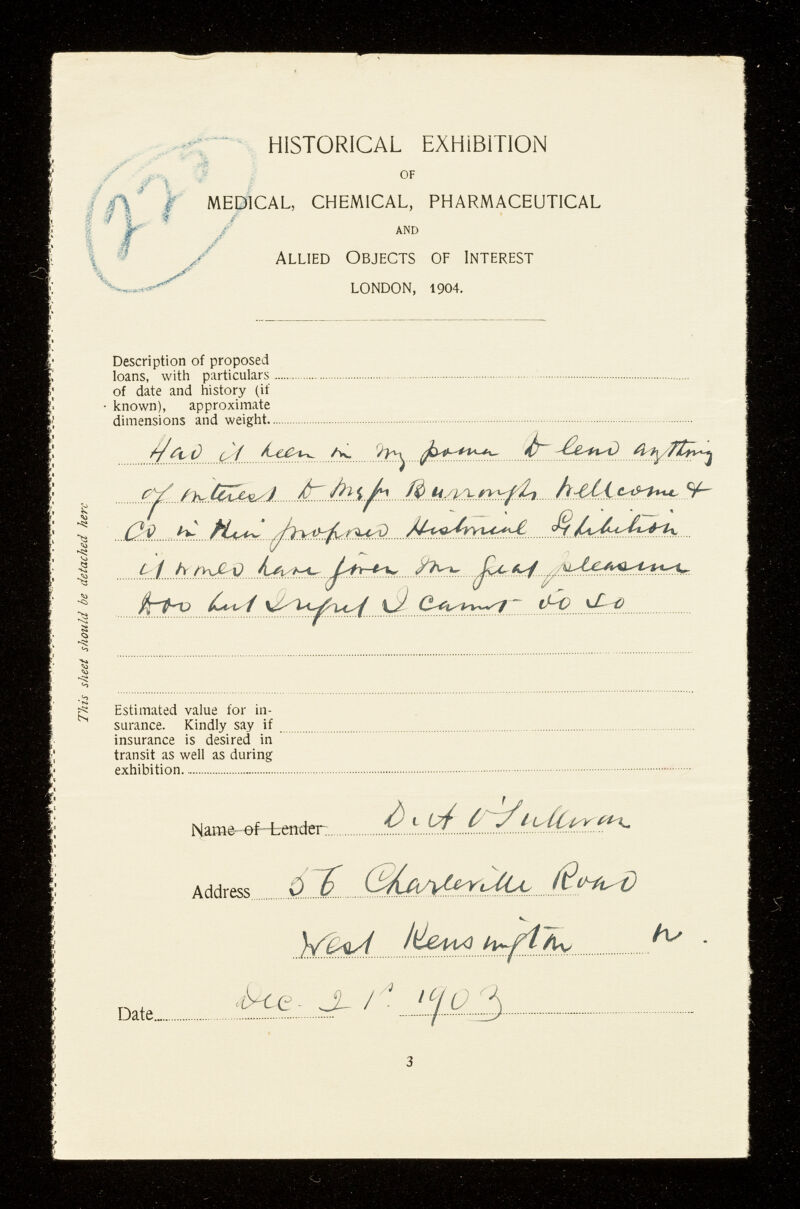 223
HISTORICAL EXHIBITION
OF
MEDICAL, CHEMICAL, PHARMACEUTICAL
AND
ALLIED OBJECTS OF INTEREST
LONDON, 1904.
Description of proposed
loans, with particulars
of date and history (if
known), approximate
dimensions and weight.
Had it been in my power to lend anything
of interest to Messrs Burroughs Wellcome &
Co in their proposed Historical Exhibition
it would have given me great pleasure
but I regret I cannot do so
This sheet should be detached here
Estimated value for in-
surance. Kindly say if
insurance is desired in
transit as well as during
exhibition.
Name of Lender O'Sullivan
Address 56 Charleville Road
West Kensington W.
Date Dec. 21st 1903
3